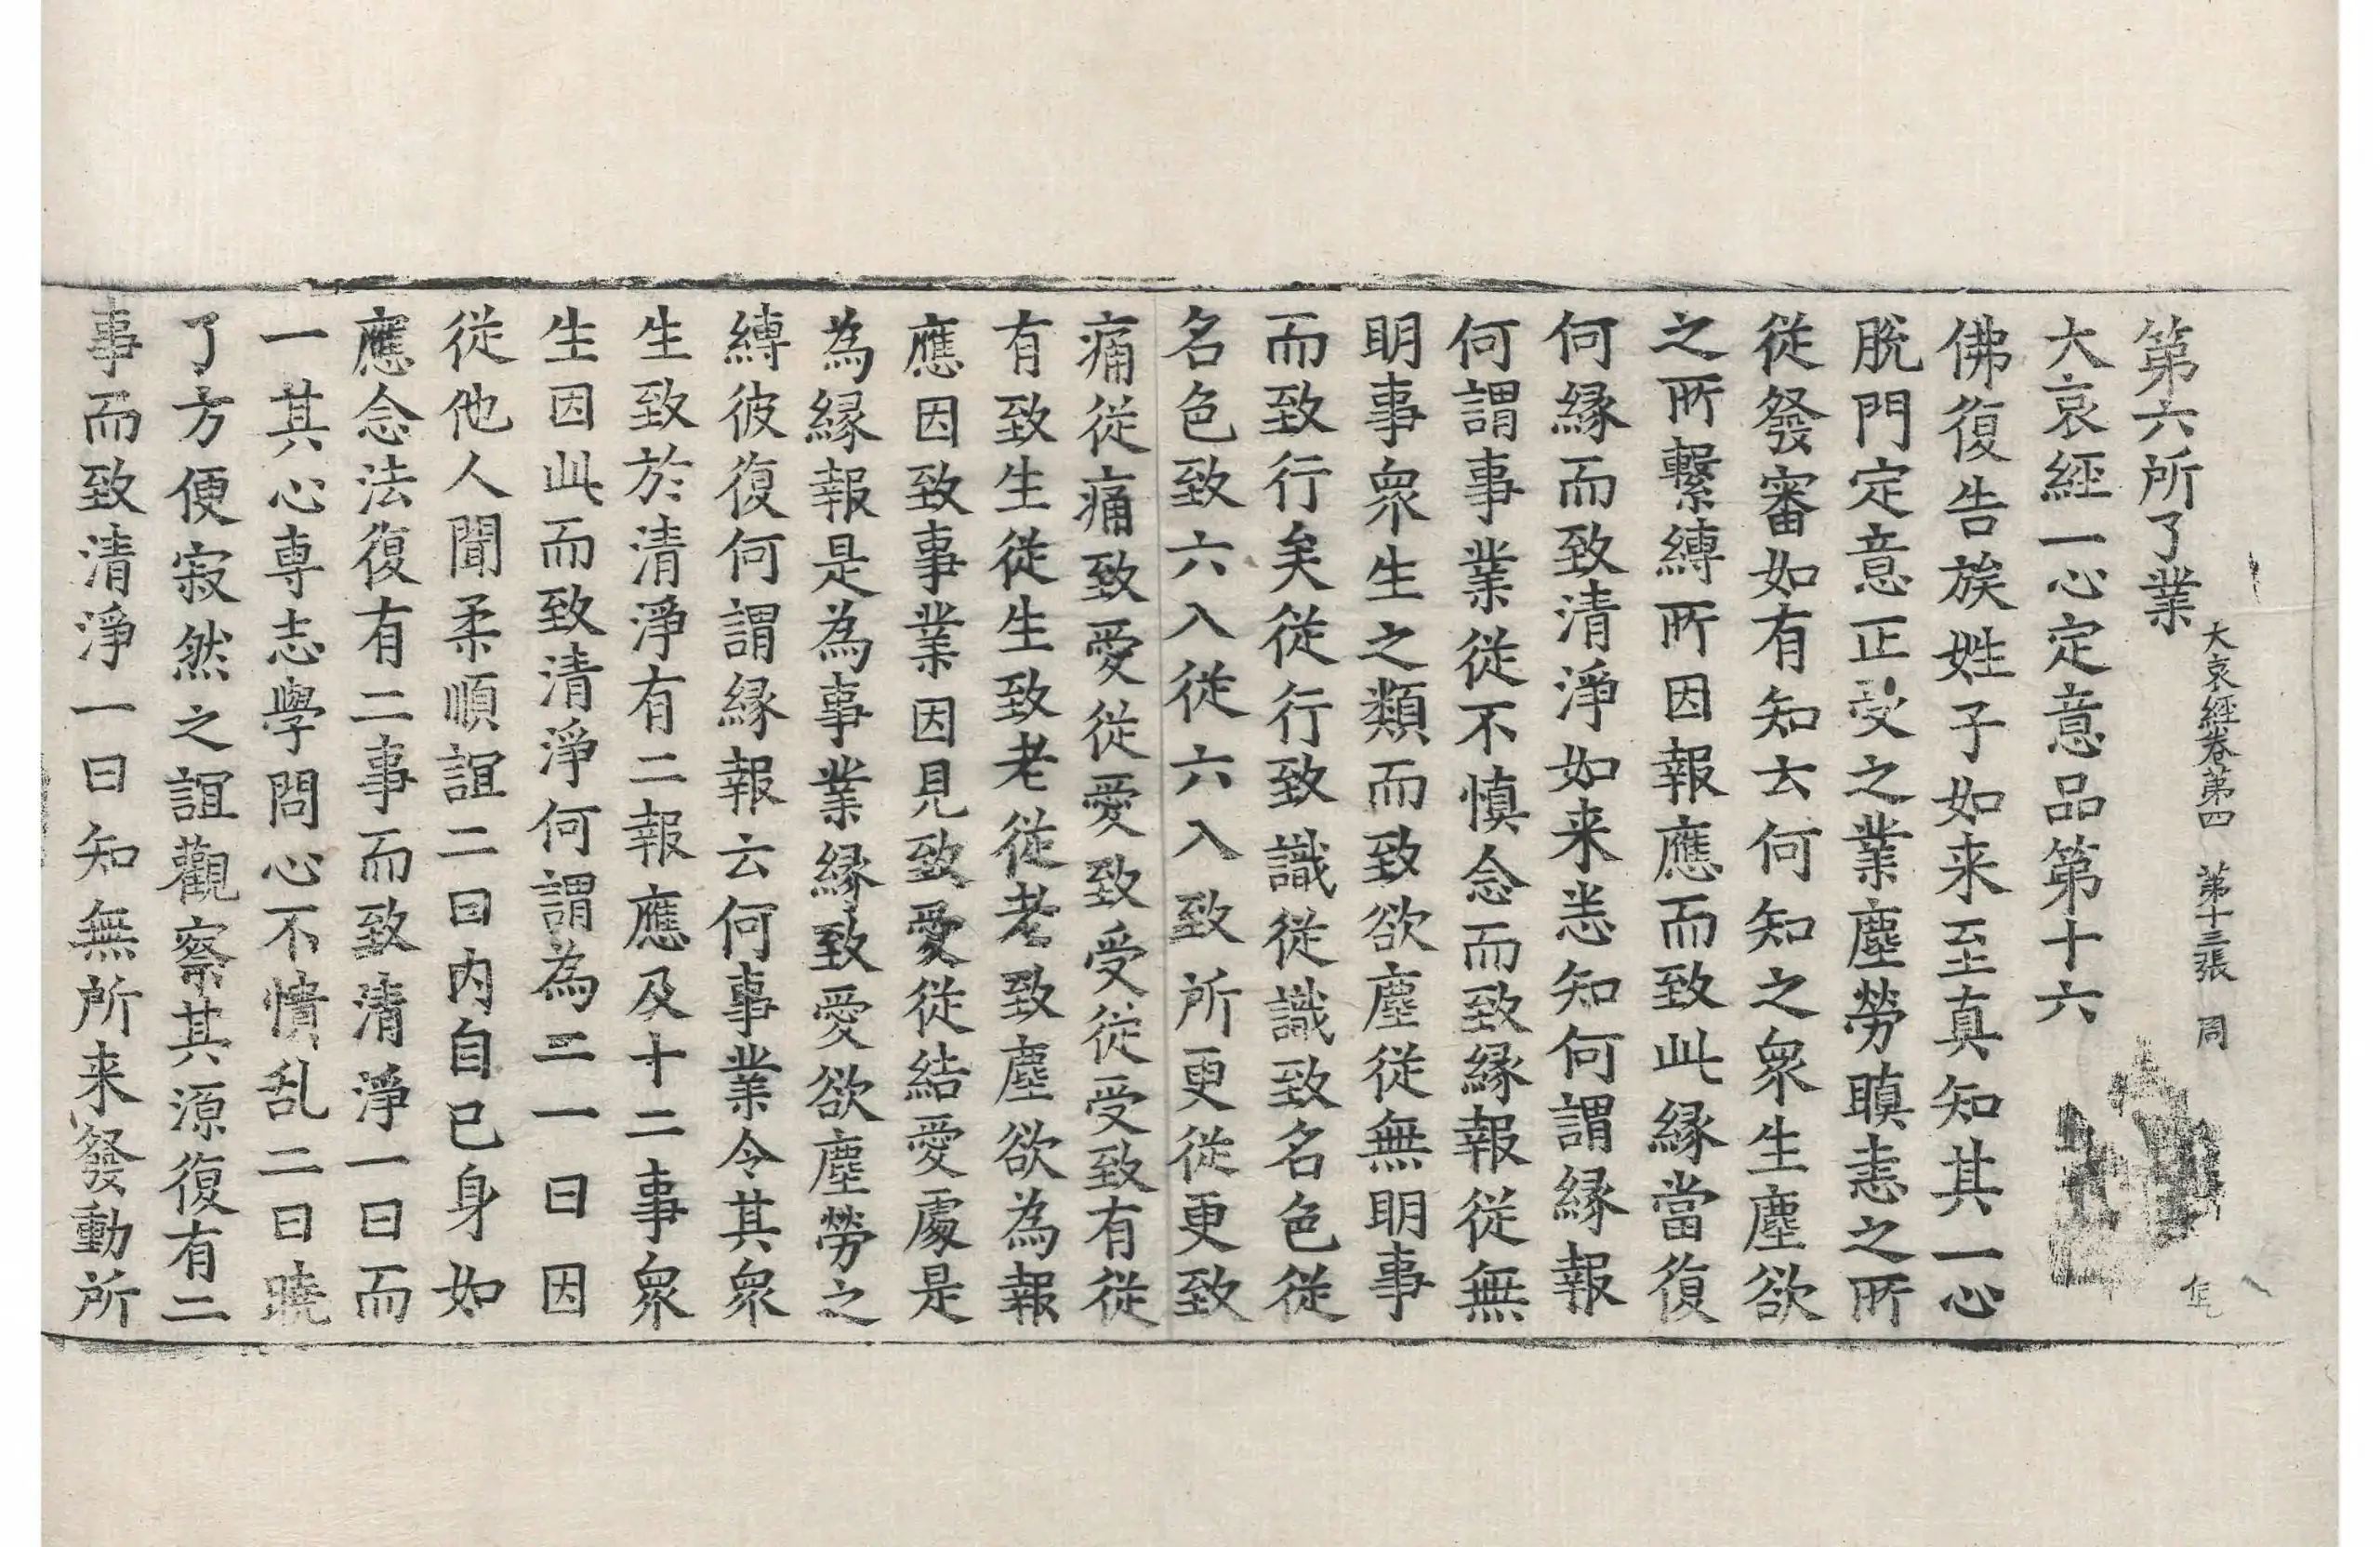 第六所了業
大哀經卷第四 第十三張 周
大哀經一心定意品第十六
佛復告族姓子如来至真知其一心
脫門定意正受之業塵勞瞋恚之所
從發審如有知去何知之衆生塵欲
之所繫縛所因報應而致此緣當復
何緣而致清淨如来悉知何謂緣報
何謂事業從不慎念而致緣報從無
明事衆生之類而致欲塵從無明事
而致行矣從行致識從識致名色從
名色致六入從六入致所更從更致
痛從痛致愛從愛致受從受致有從
有致生從生致老從老致塵欲為報
應因致事業因見致愛從結愛處是
為緣報是為事業緣致愛欲塵勞之
縛彼復何謂緣報云何事業令其衆
生致於清淨有二報應及十二事衆
生因此而致清淨何謂為二一曰因
從他人聞柔順誼二曰内自己身如
應念法復有二事而致清淨一曰而
一其心專志學問心不憒乱二曰曉
了方便寂然之誼觀察其源復有二
事而致清淨一曰知無所来發動所